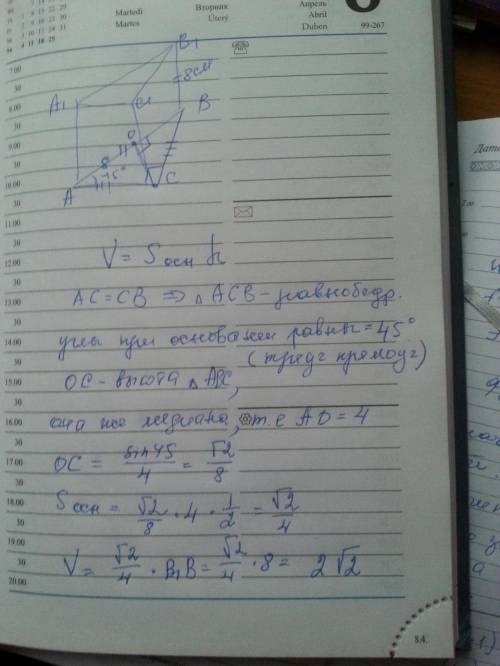 Martedì Вторник Апрель
Martes Úterý Abril
Duben 99-267
7.00
30
8.00
30
9.00
30
10.00
30
11.00
30
12.00
30
13.00
30
14.00
30
15.00
30
16.00
30
17.00
30
18.00
30
19.00
30
20.00
B₁
8см
A₁
C₁
B
O
8
45°
A
C
V = Sосн h
AC = CB ⇒ △ ACB - равнобедр.
углы при основании равны = 45°
(треуг прямоуг)
OC - высота △ ABC,
она же медиана, т.е AO = 4
OC = sin45/4 = √2/8
Sосн = √2/8 · 4 · 1/2 = √2/4
V = √2/4 · B₁B = √2/4 · 8 = 2√2
84.
Дата